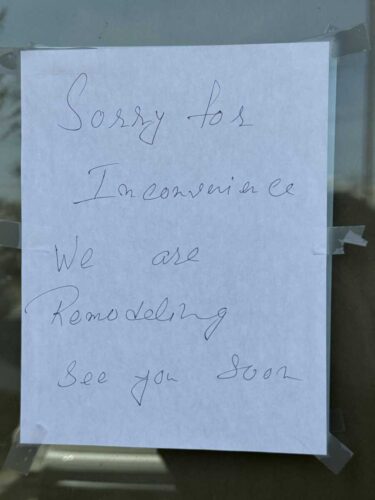 Sorry for
Inconvenience
We are
Remodeling
See you Soon